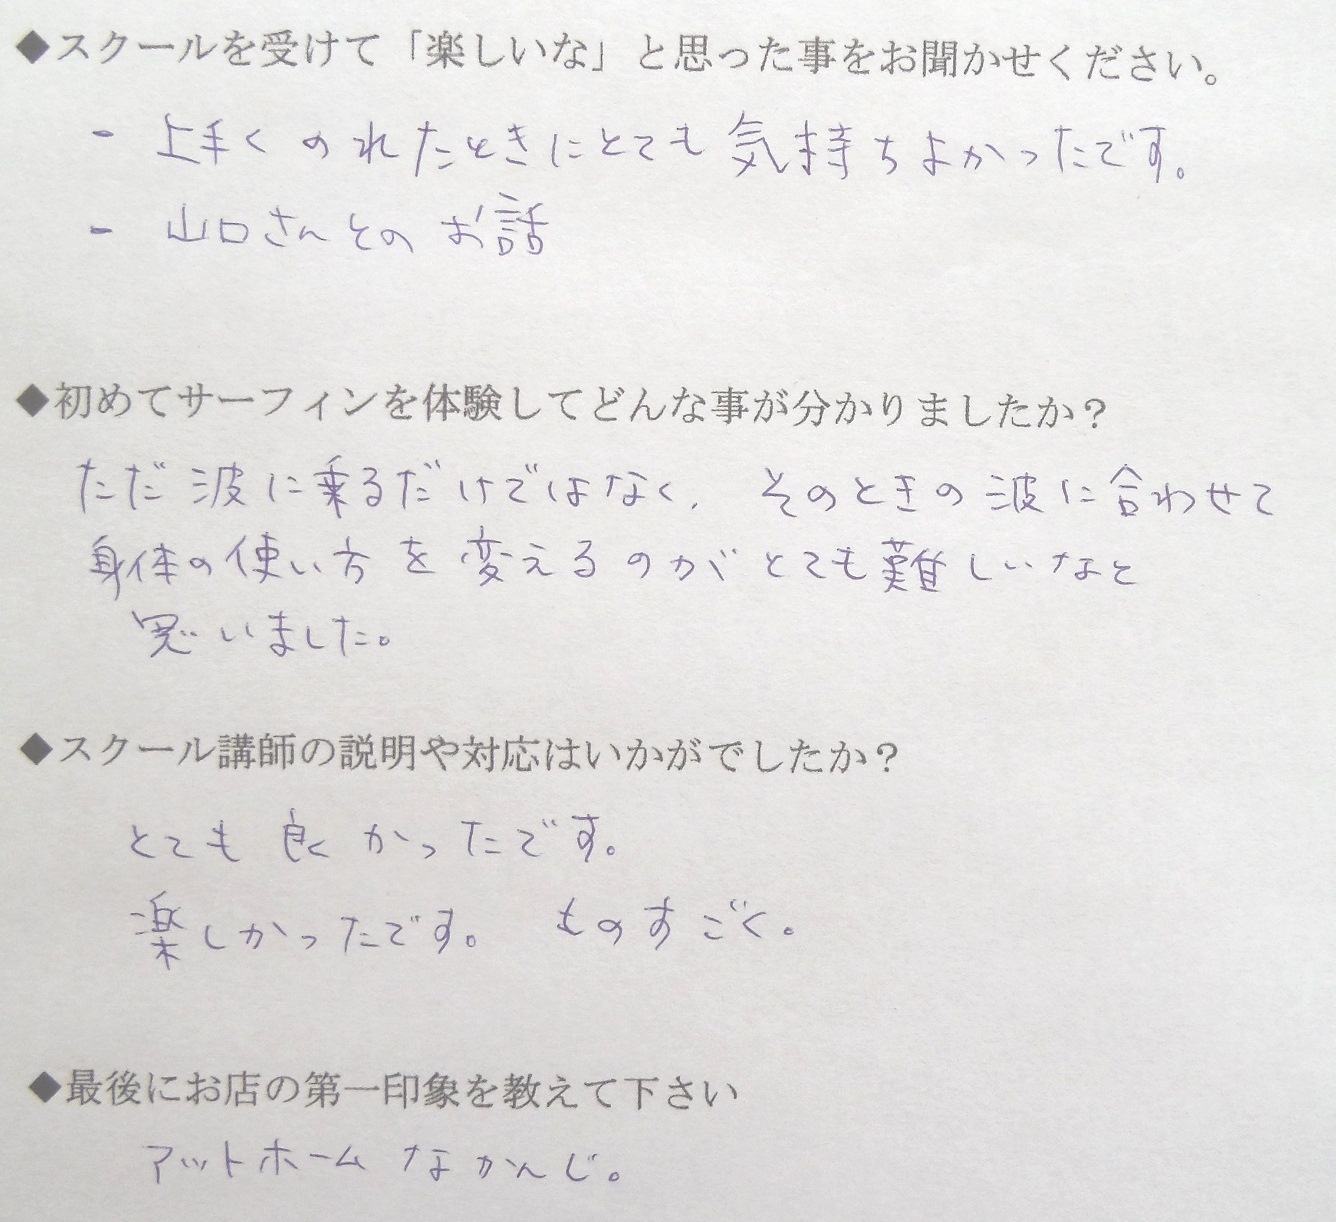 ◆スクールを受けて「楽しいな」と思った事をお聞かせください。
- 上手くのれたときにとても気持ちよかったです。
- 山口さんとのお話
◆初めてサーフィンを体験してどんな事が分かりましたか？
ただ波に乗るだけではなく、そのときの波に合わせて
身体の使い方を変えるのがとても難しいなと
思いました。
◆スクール講師の説明や対応はいかがでしたか？
とても良くかったです。
楽しかったです。 ものすごく。
◆最後にお店の第一印象を教えて下さい
アットホームなかんじ。